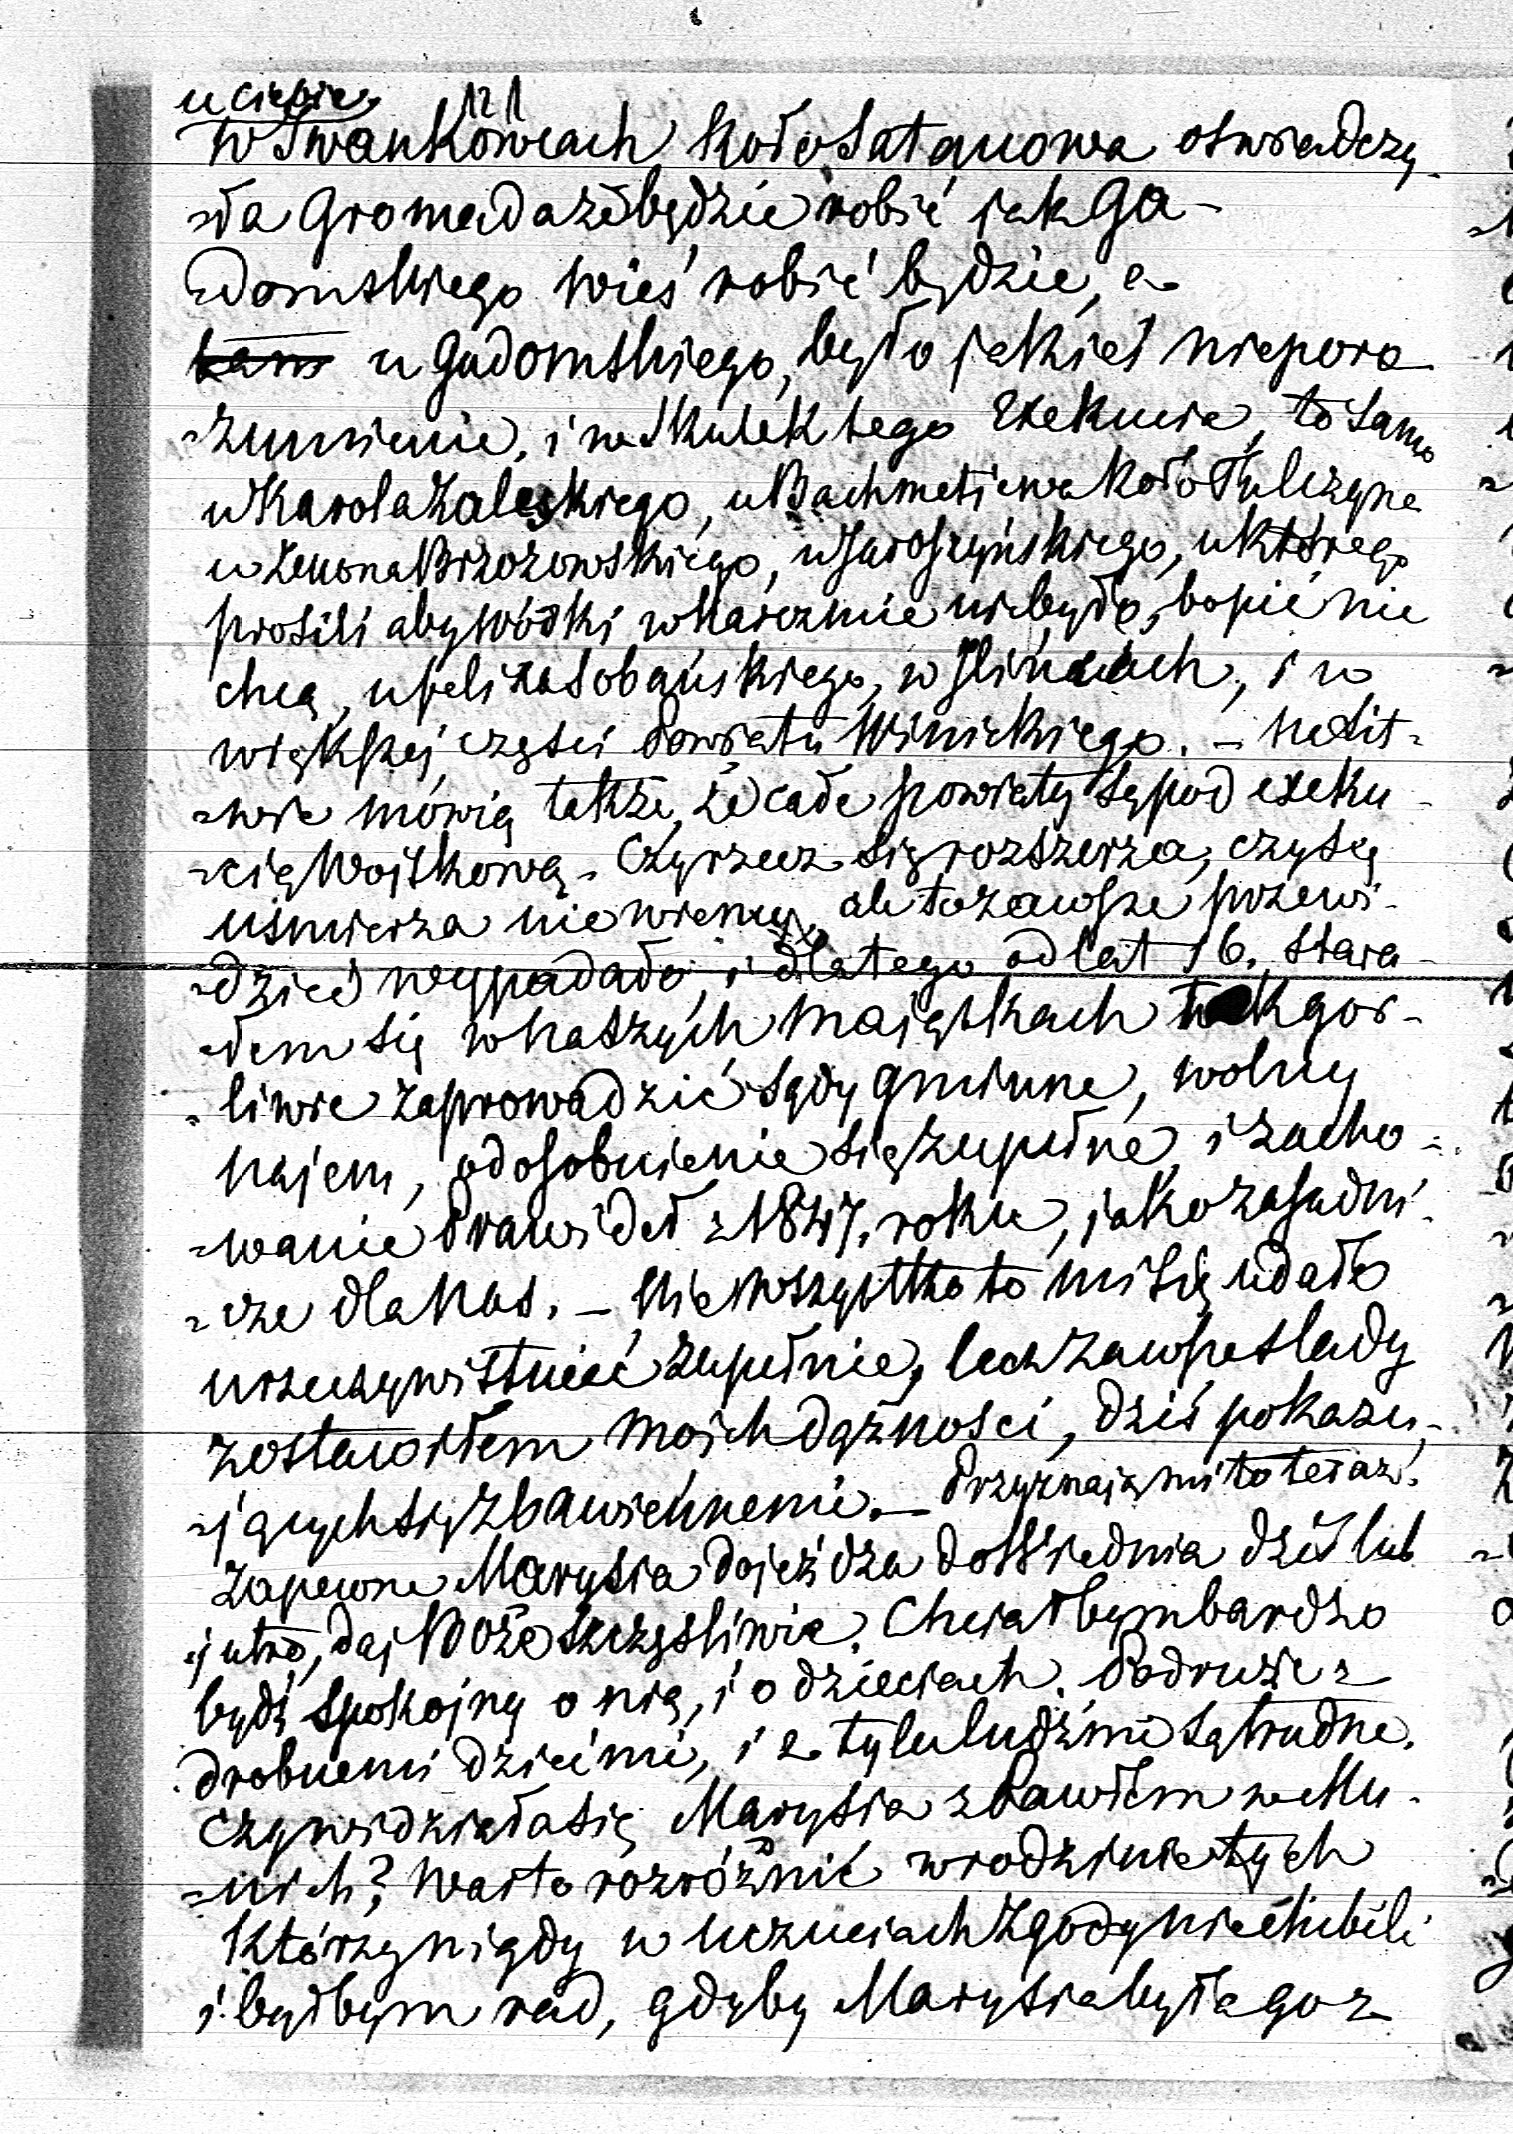 u Ciebie,
121
w Iwankowcach koło Satanowa oświadczy-
-ła Gromada że będzie robić jak Ga-
-domskiego wieś robić będzie, a
tam u Gadomskiego, było jakieś nieporo-
-zumienie, i na skutek tego Exekucia, to samo
u Karola Zaleskiego, u Bachmetiewa koło Tulczyna
u Zenona Brzozowskiego, u Jaroszyńskiego, u którego
prosili aby wódki w karczmie nie było, bo pić nie
chcą, u felixa Sobańskiego, w Ilińcach, i w
większej części Powiatu Winickiego. – na Lit-
-wie mówią także, że całe powiaty są pod exeku-
-cią Wojskową. Czy rzecz się rozszerza, czy się
uśmierza nie wiemy, ale to zawsze przewi-
-dzieć wypadało, i dlatego od lat 16. stara-
-łem się w naszych majątkach tak gor-
-liwie zaprowadzić sądy gminne, wolny
najem, odosobnienie się zupełne, i zacho-
-wanie Prawideł z 1847. roku, jako zasadni-
-cze dla nas. – Nie wszystko to mi się udało
urzeczywistnić zupełnie, lecz zawsze ślady
zostawiłem moich dążności, dziś pokazu-
-jących się zbawiennemi. – Przyznają mi to teraz.
Zapewne Marysia dojeżdża do Wiednia dziś lub
jutro, daj Boże szczęśliwie. Chciałbym bardzo
być spokojny o nią, i o dzieciach. Podruże z
drobnemi dziećmi, i z tylu ludźmi są trudne.
Czy widziała się Marysia z Pawłem w Mu-
-nich? Warto rozróżnić w rodzinie tych
którzy nigdy w uczuciach zgody nie chybili
i byłbym rad, gdyby Marysia była go z